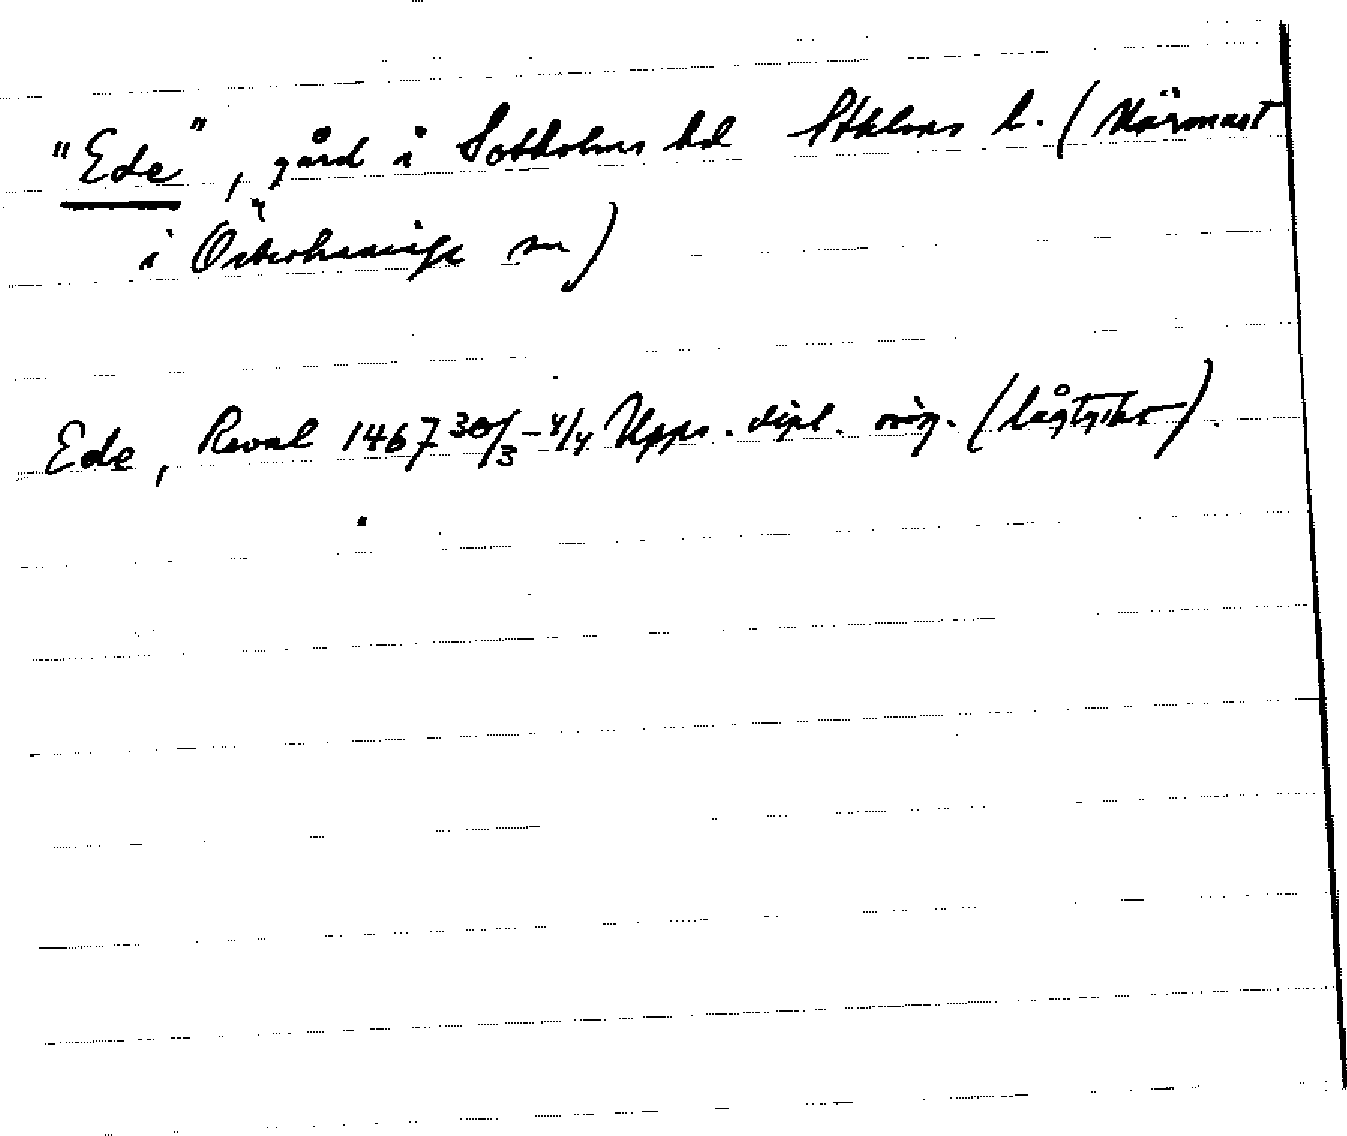 "Ede", gård i Sotholms hd Sthlms l. (Närmast
i Österhaninge sn)
Ede, Reval 1467 30/3-4/4 Upps. dipl. orig. (lågtyska).